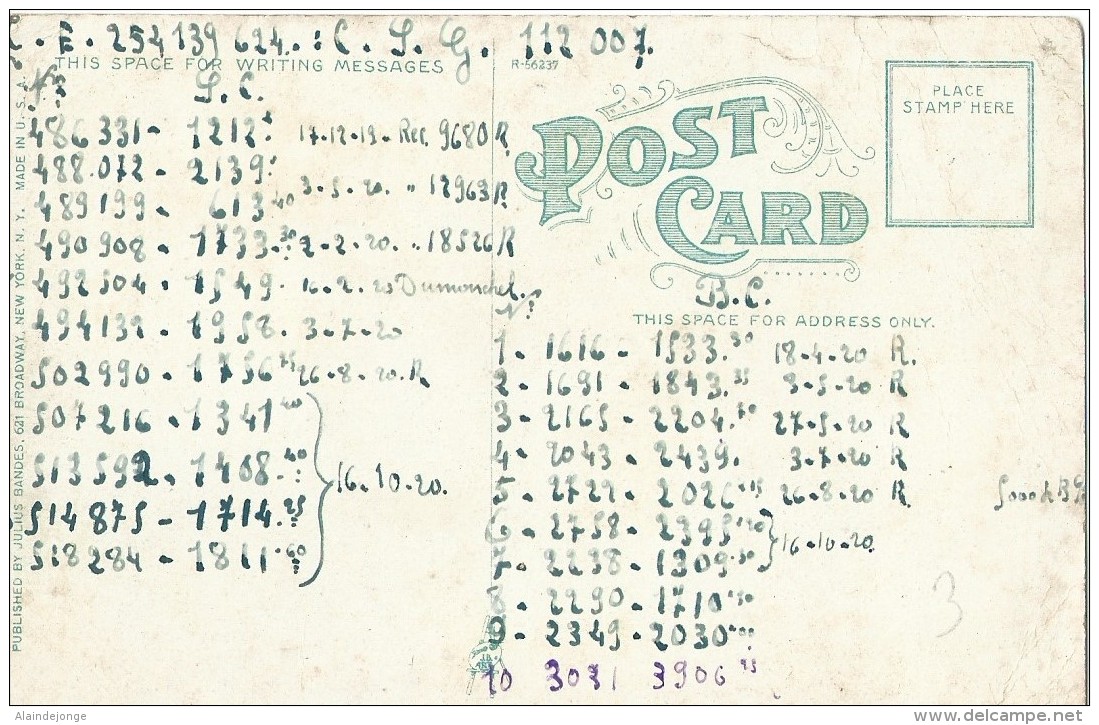 R. E. 254139624. : C. S. G. 112 007.
THIS SPACE FOR WRITING MESSAGES
R-56237
PLACE
STAMP HERE
POST
CARD
Nos S. C.
486331 - 1212 17-12-19 - Rec. 9680 R
488.072 - 2139 3-5-20. " 12963 R
489199 - 613 40
490908 - 1733. 30 2-2-20. " 18526 R
492504 - 1549. 16-2-20 Dumonchel.
494139 - 1958. 3-7-20
502990 - 1756 75 26-8-20. R
507216 - 1341 40
513592 - 1408. 40
514875 - 1714. 25
518284 - 1811. 60
16-10-20.
B.C.
THIS SPACE FOR ADDRESS ONLY.
1 - 1616 - 1533. 30 18-4-20 R.
2 - 1691 - 1843. 35 3-5-20 R
3 - 2165 - 2204. 70 27-5-20 R
4 - 2043 - 2439. 3-7-20 R
5 - 2722 - 2026 26-8-20 R.
6 - 2758 - 2395
7 - 2238 - 1309
16-10-20.
8 - 2290 - 1710
9 - 2349 - 2030
10 3031 3906 95
3
PUBLISHED BY JULIUS BANDES, 621 BROADWAY, NEW YORK, N. Y. MADE IN U. S. A.
Alaindejonge
delcampe.net